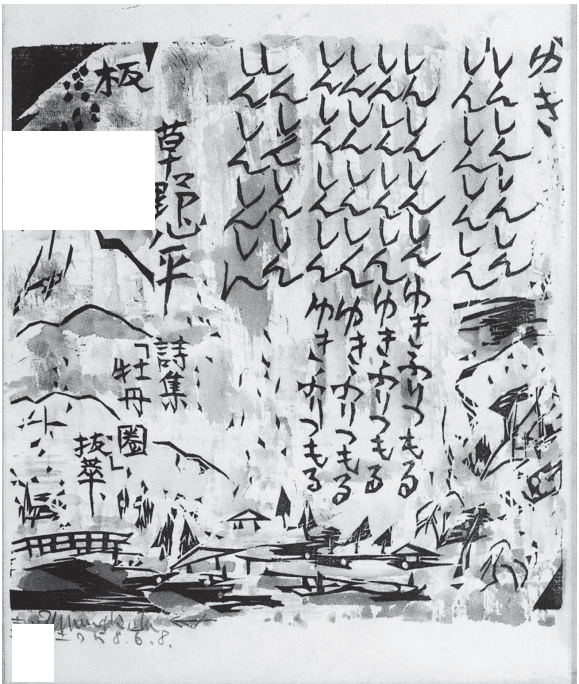 ゆき
しんしんしんしん
しんしんしんしん
しんしんしんしんゆきふりつもる
しんしんしんしんゆきふりつもる
しんしんしんしんゆきふりつもる
しんしんしんしんゆきふりつもる
しんしんしんしん
しんしんしんしん
草野心平
詩集
「牡丹圏」
抜萃
板